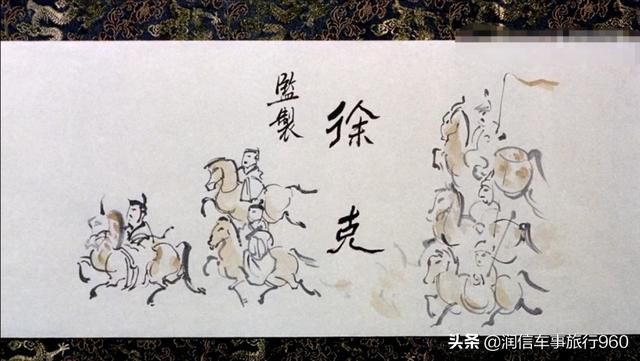 監製
徐克
头条 @润信车事旅行960